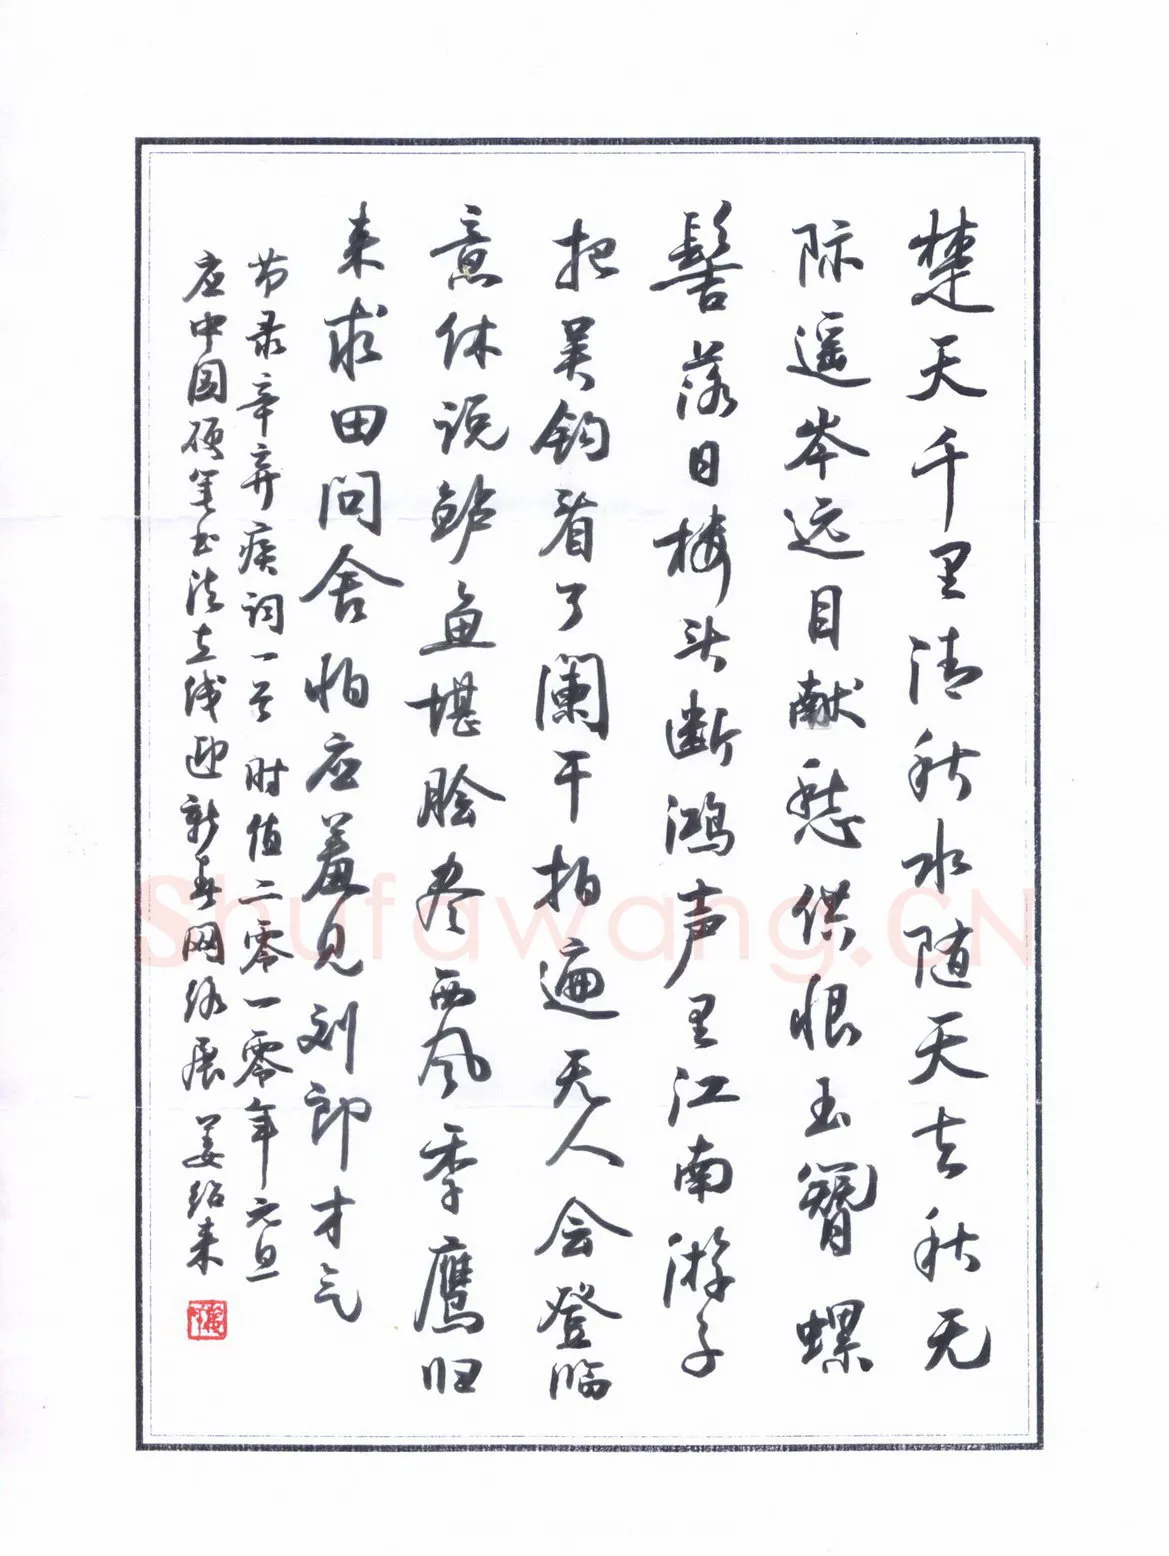 楚天千里清秋水随天去秋无
际遥岑远目献愁供恨玉簪螺
髻落日楼头断鸿声里江南游子
把吴钩看了阑干拍遍无人会登临
意休说鲈鱼堪脍尽西风季鹰归
来求田问舍怕应羞见刘郎才气
节录辛弃疾词一首 时值二零一零年元旦
应中国硬笔书法在线迎新春网络展 姜绍来
Shufawang.CN